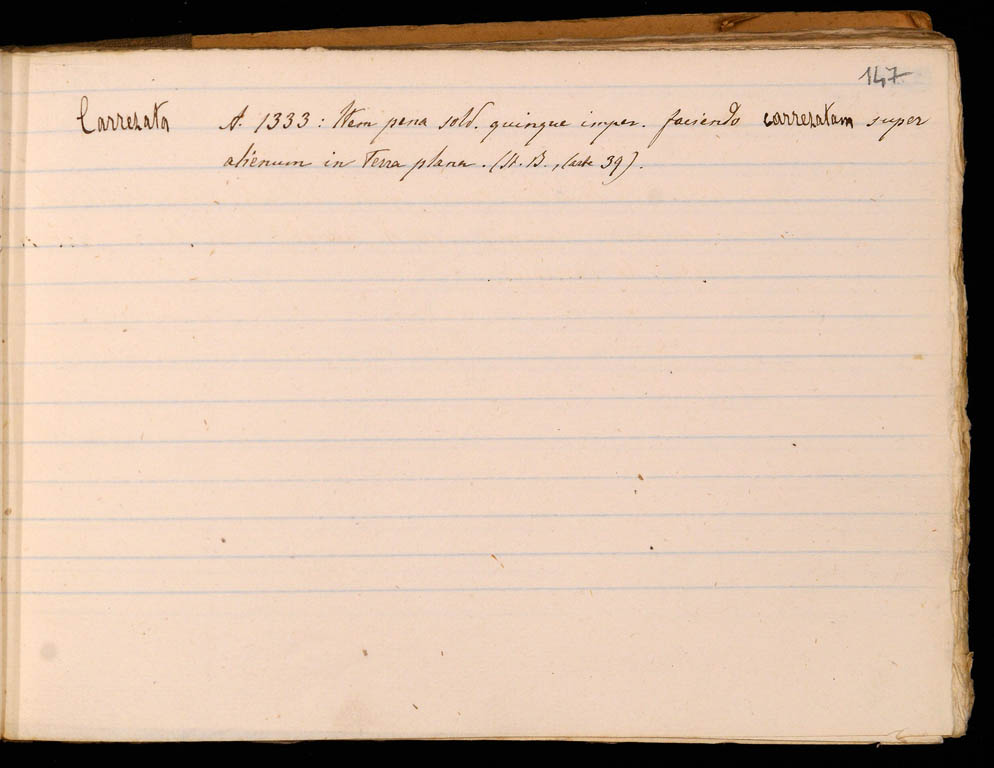 147
Carrezata A. 1333: Item pena sold. quinque imper. faciendo carrezatam super
alienum in Terra plana. (St. B., carte 39).